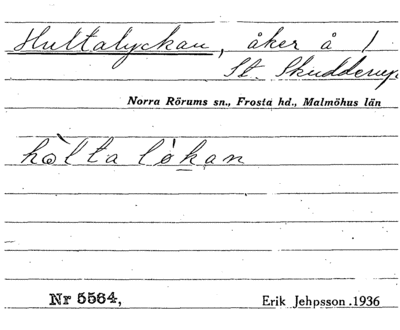 Hultalyckan, åker å 1
St. Skudderup.
Norra Rörums sn., Frosta hd., Malmöhus län
hòlta lókan
Nr 5564,
Erik Jehpsson.1936